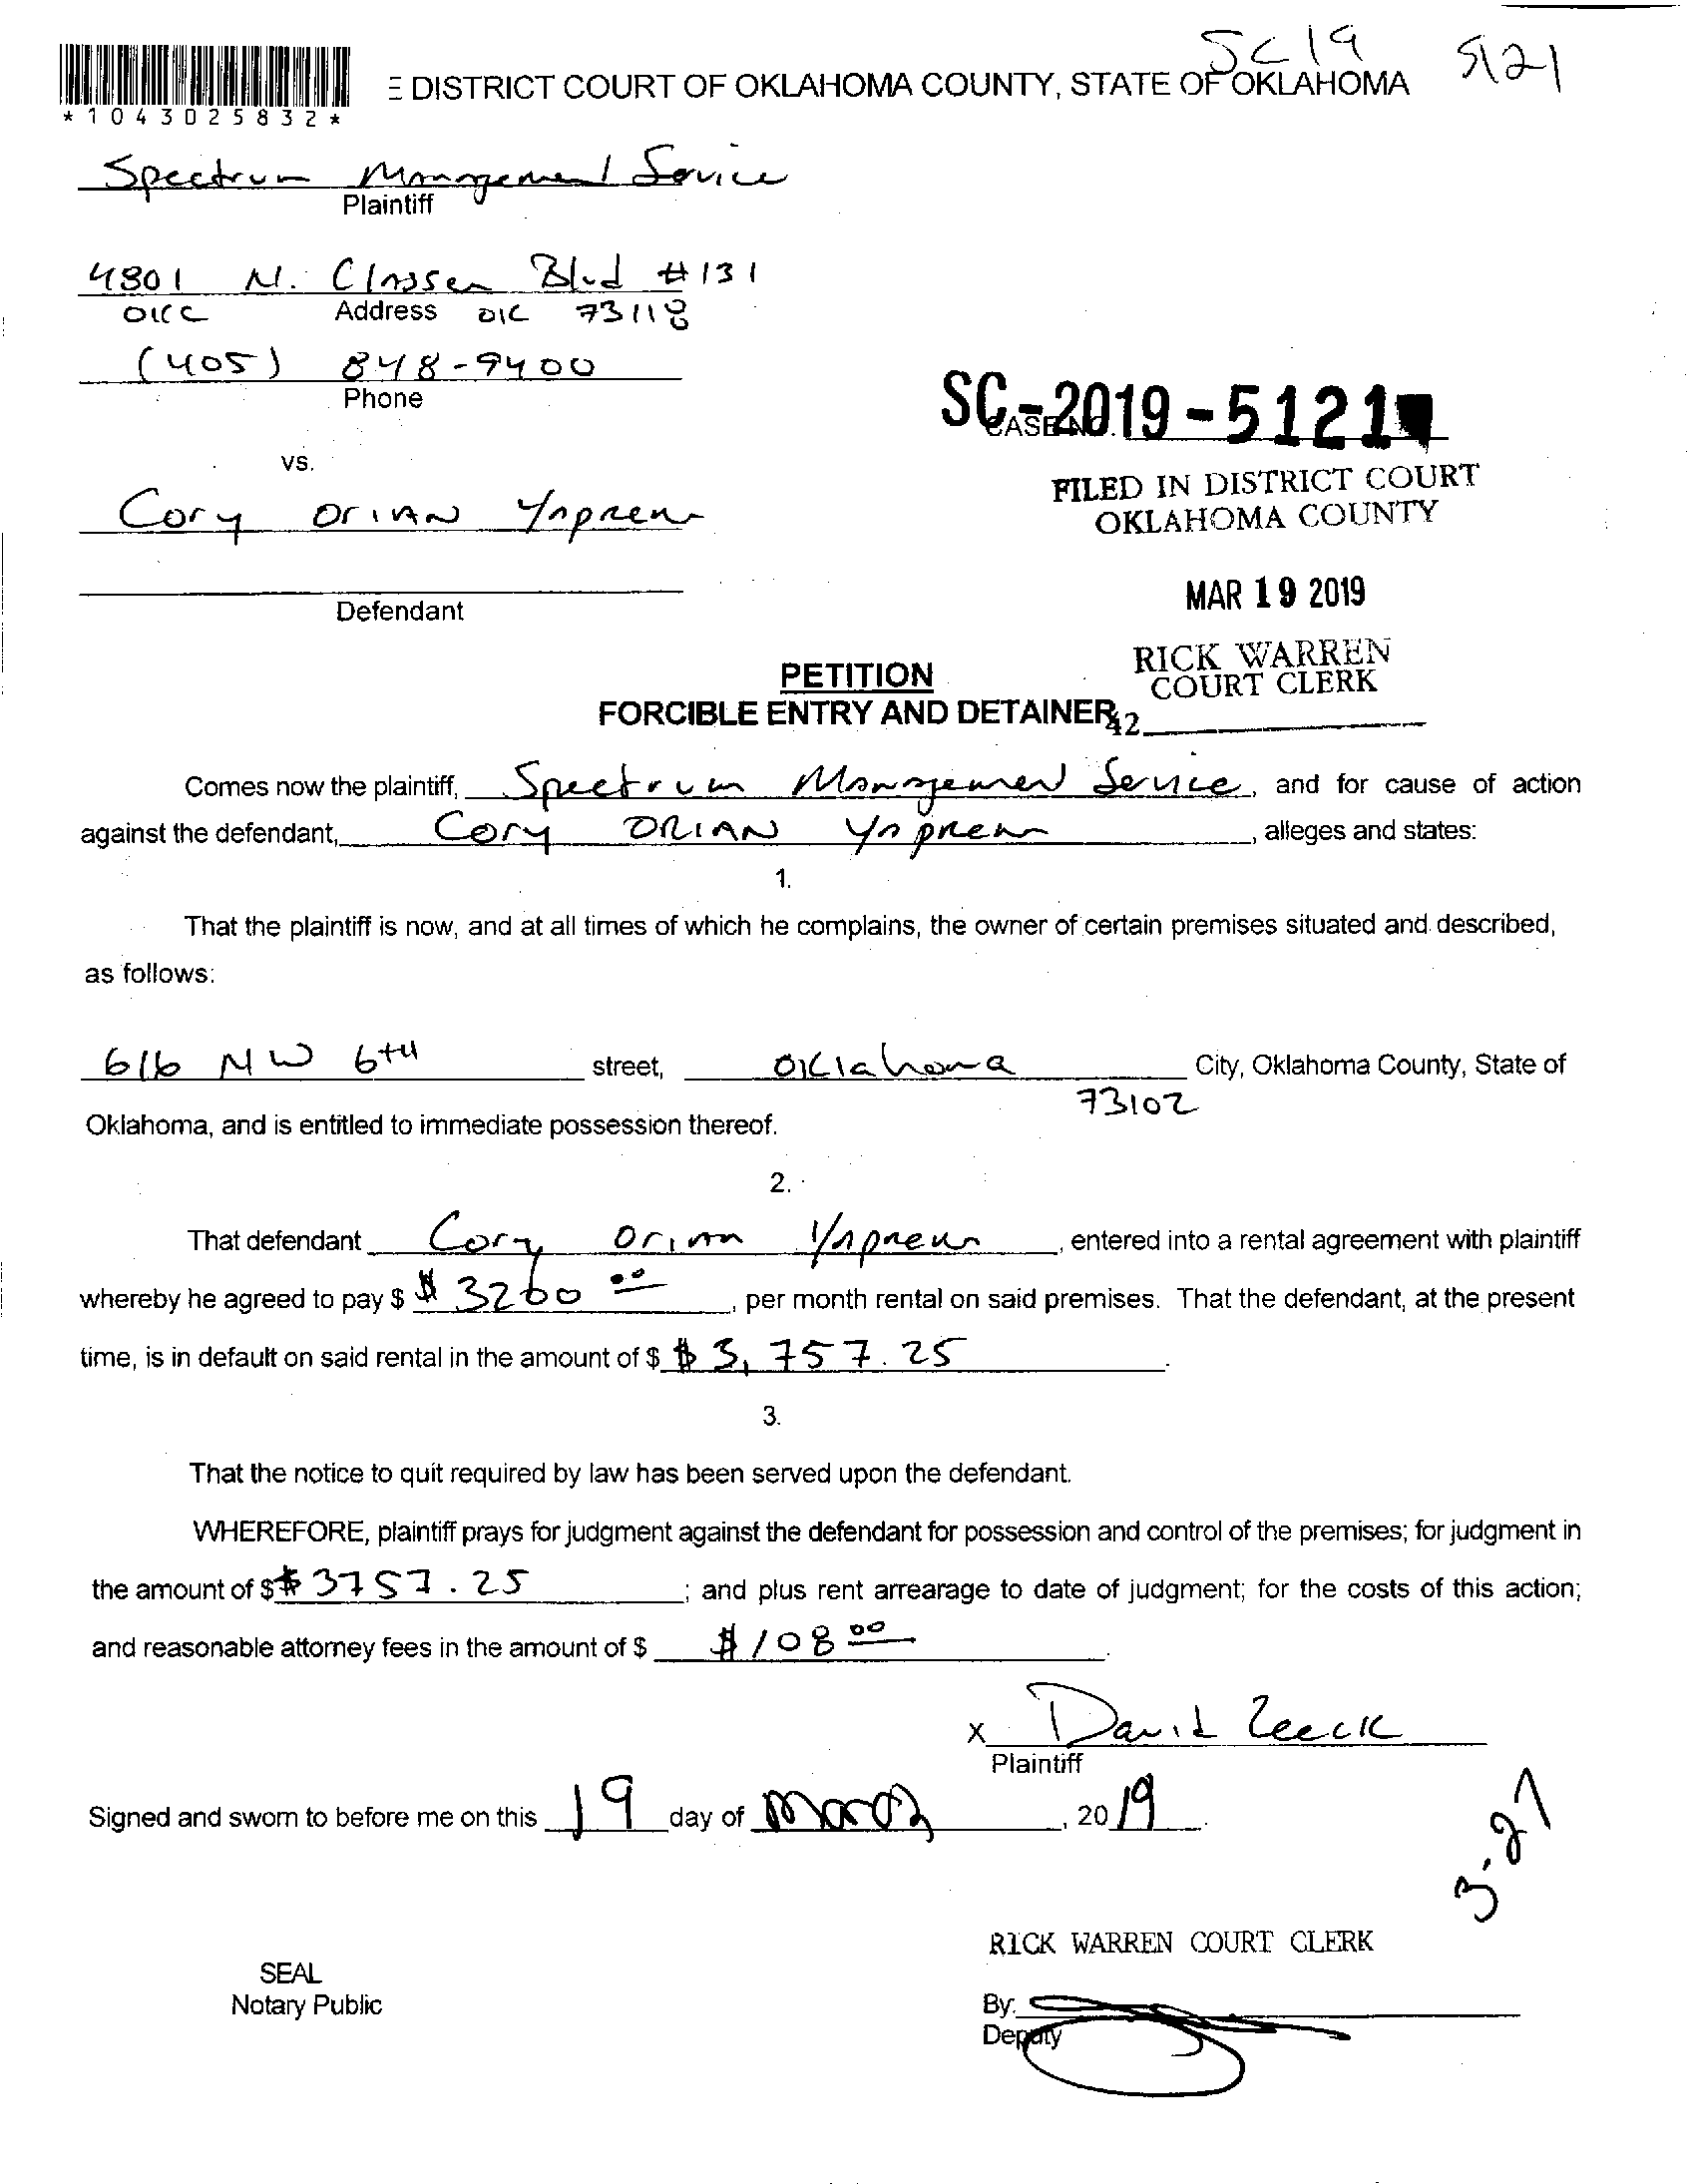 SC19 5121
E DISTRICT COURT OF OKLAHOMA COUNTY, STATE OF OKLAHOMA
*1043025832*
Spectrum Management Service
Plaintiff
4801 N. Classen Blvd #131
OKC Address OK 73118
(405) 848-9400
Phone
SC-2019-5121
CASE NO.
vs.
FILED IN DISTRICT COURT
OKLAHOMA COUNTY
Cory Orian
MAR 19 2019
Defendant
RICK WARREN
COURT CLERK
PETITION
FORCIBLE ENTRY AND DETAINER
42
Comes now the plaintiff, Spectrum Management Service, and for cause of action
against the defendant, Cory ORIAN, alleges and states:
1.
That the plaintiff is now, and at all times of which he complains, the owner of certain premises situated and described,
as follows:
616 NW 6TH street, Oklahoma City, Oklahoma County, State of
73102
Oklahoma, and is entitled to immediate possession thereof.
2.
That defendant Cory Orian, entered into a rental agreement with plaintiff
whereby he agreed to pay $ $3260 00, per month rental on said premises. That the defendant, at the present
time, is in default on said rental in the amount of $ $3,757.25.
3.
That the notice to quit required by law has been served upon the defendant.
WHEREFORE, plaintiff prays for judgment against the defendant for possession and control of the premises; for judgment in
the amount of $ $3757.25; and plus rent arrearage to date of judgment; for the costs of this action;
and reasonable attorney fees in the amount of $ $108 00.
X David Zeeck
Plaintiff
Signed and sworn to before me on this 19 day of March, 2019.
3-27
RICK WARREN COURT CLERK
SEAL
Notary Public
By:
Deputy